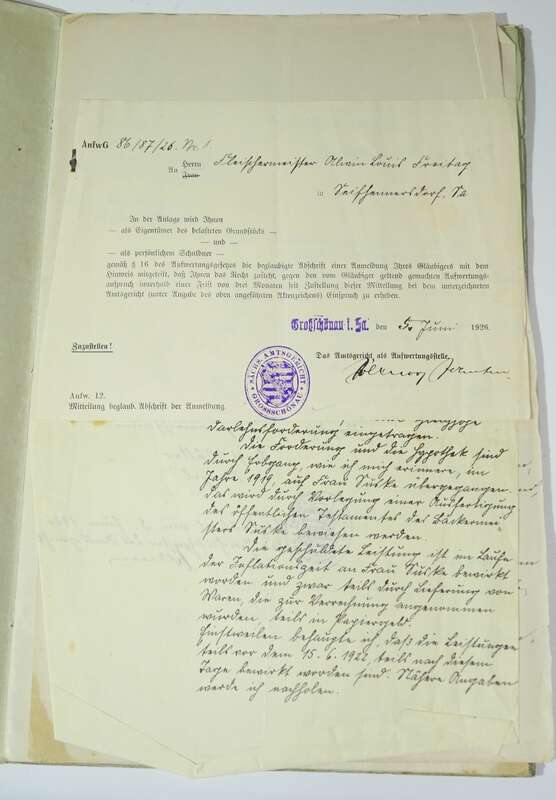 AufwG 86/87/26. Nr. 1.
An Herrn Fleischermeister Alwin Louis Freitag
Frau
in Seifhennersdorf, Sa
In der Anlage wird Ihnen
— als Eigentümer des belasteten Grundstücks —
— und —
— als persönlichem Schuldner —
gemäß § 16 des Aufwertungsgesetzes die beglaubigte Abschrift einer Anmeldung Ihres Gläubigers mit dem
Hinweis mitgeteilt, daß Ihnen das Recht zusteht, gegen den vom Gläubiger geltend gemachten Aufwertungs-
anspruch innerhalb einer Frist von drei Monaten seit Zustellung dieser Mitteilung bei dem unterzeichneten
Amtsgericht (unter Angabe des oben angeführten Aktenzeichens) Einspruch zu erheben.
Großschönau i. Sa. den 5. Juni 1926.
Zuzustellen!
Das Amtsgericht als Aufwertungsstelle,
SÄCHS. AMTSGERICHT
GROSSSCHÖNAU
Aufw. 12.
Mitteilung beglaub. Abschrift der Anmeldung.
Darlehnsforderung eingetragen.
Die Forderung und die Hypothek sind
durch Erbgang, wie ich mich erinnere, im
Jahre 1919, auf Frau Süske übergegangen.
das wird durch Vorlegung einer Ausfertigung
des öffentlichen Testamentes des Bäckermei-
sters Süske bewiesen werden.
Die geschuldete Leistung ist im Laufe
der Inflationszeit an Frau Süske bewirkt
worden und zwar teils durch Lieferung von
Waren, die zur Verrechnung angenommen
wurden, teils in Papiergeld.
Einstweilen behaupte ich, daß die Leistungen
teils vor dem 15. 6. 1922, teils nach diesem
Tage bewirkt worden sind. Nähere Angaben
werde ich nachholen.